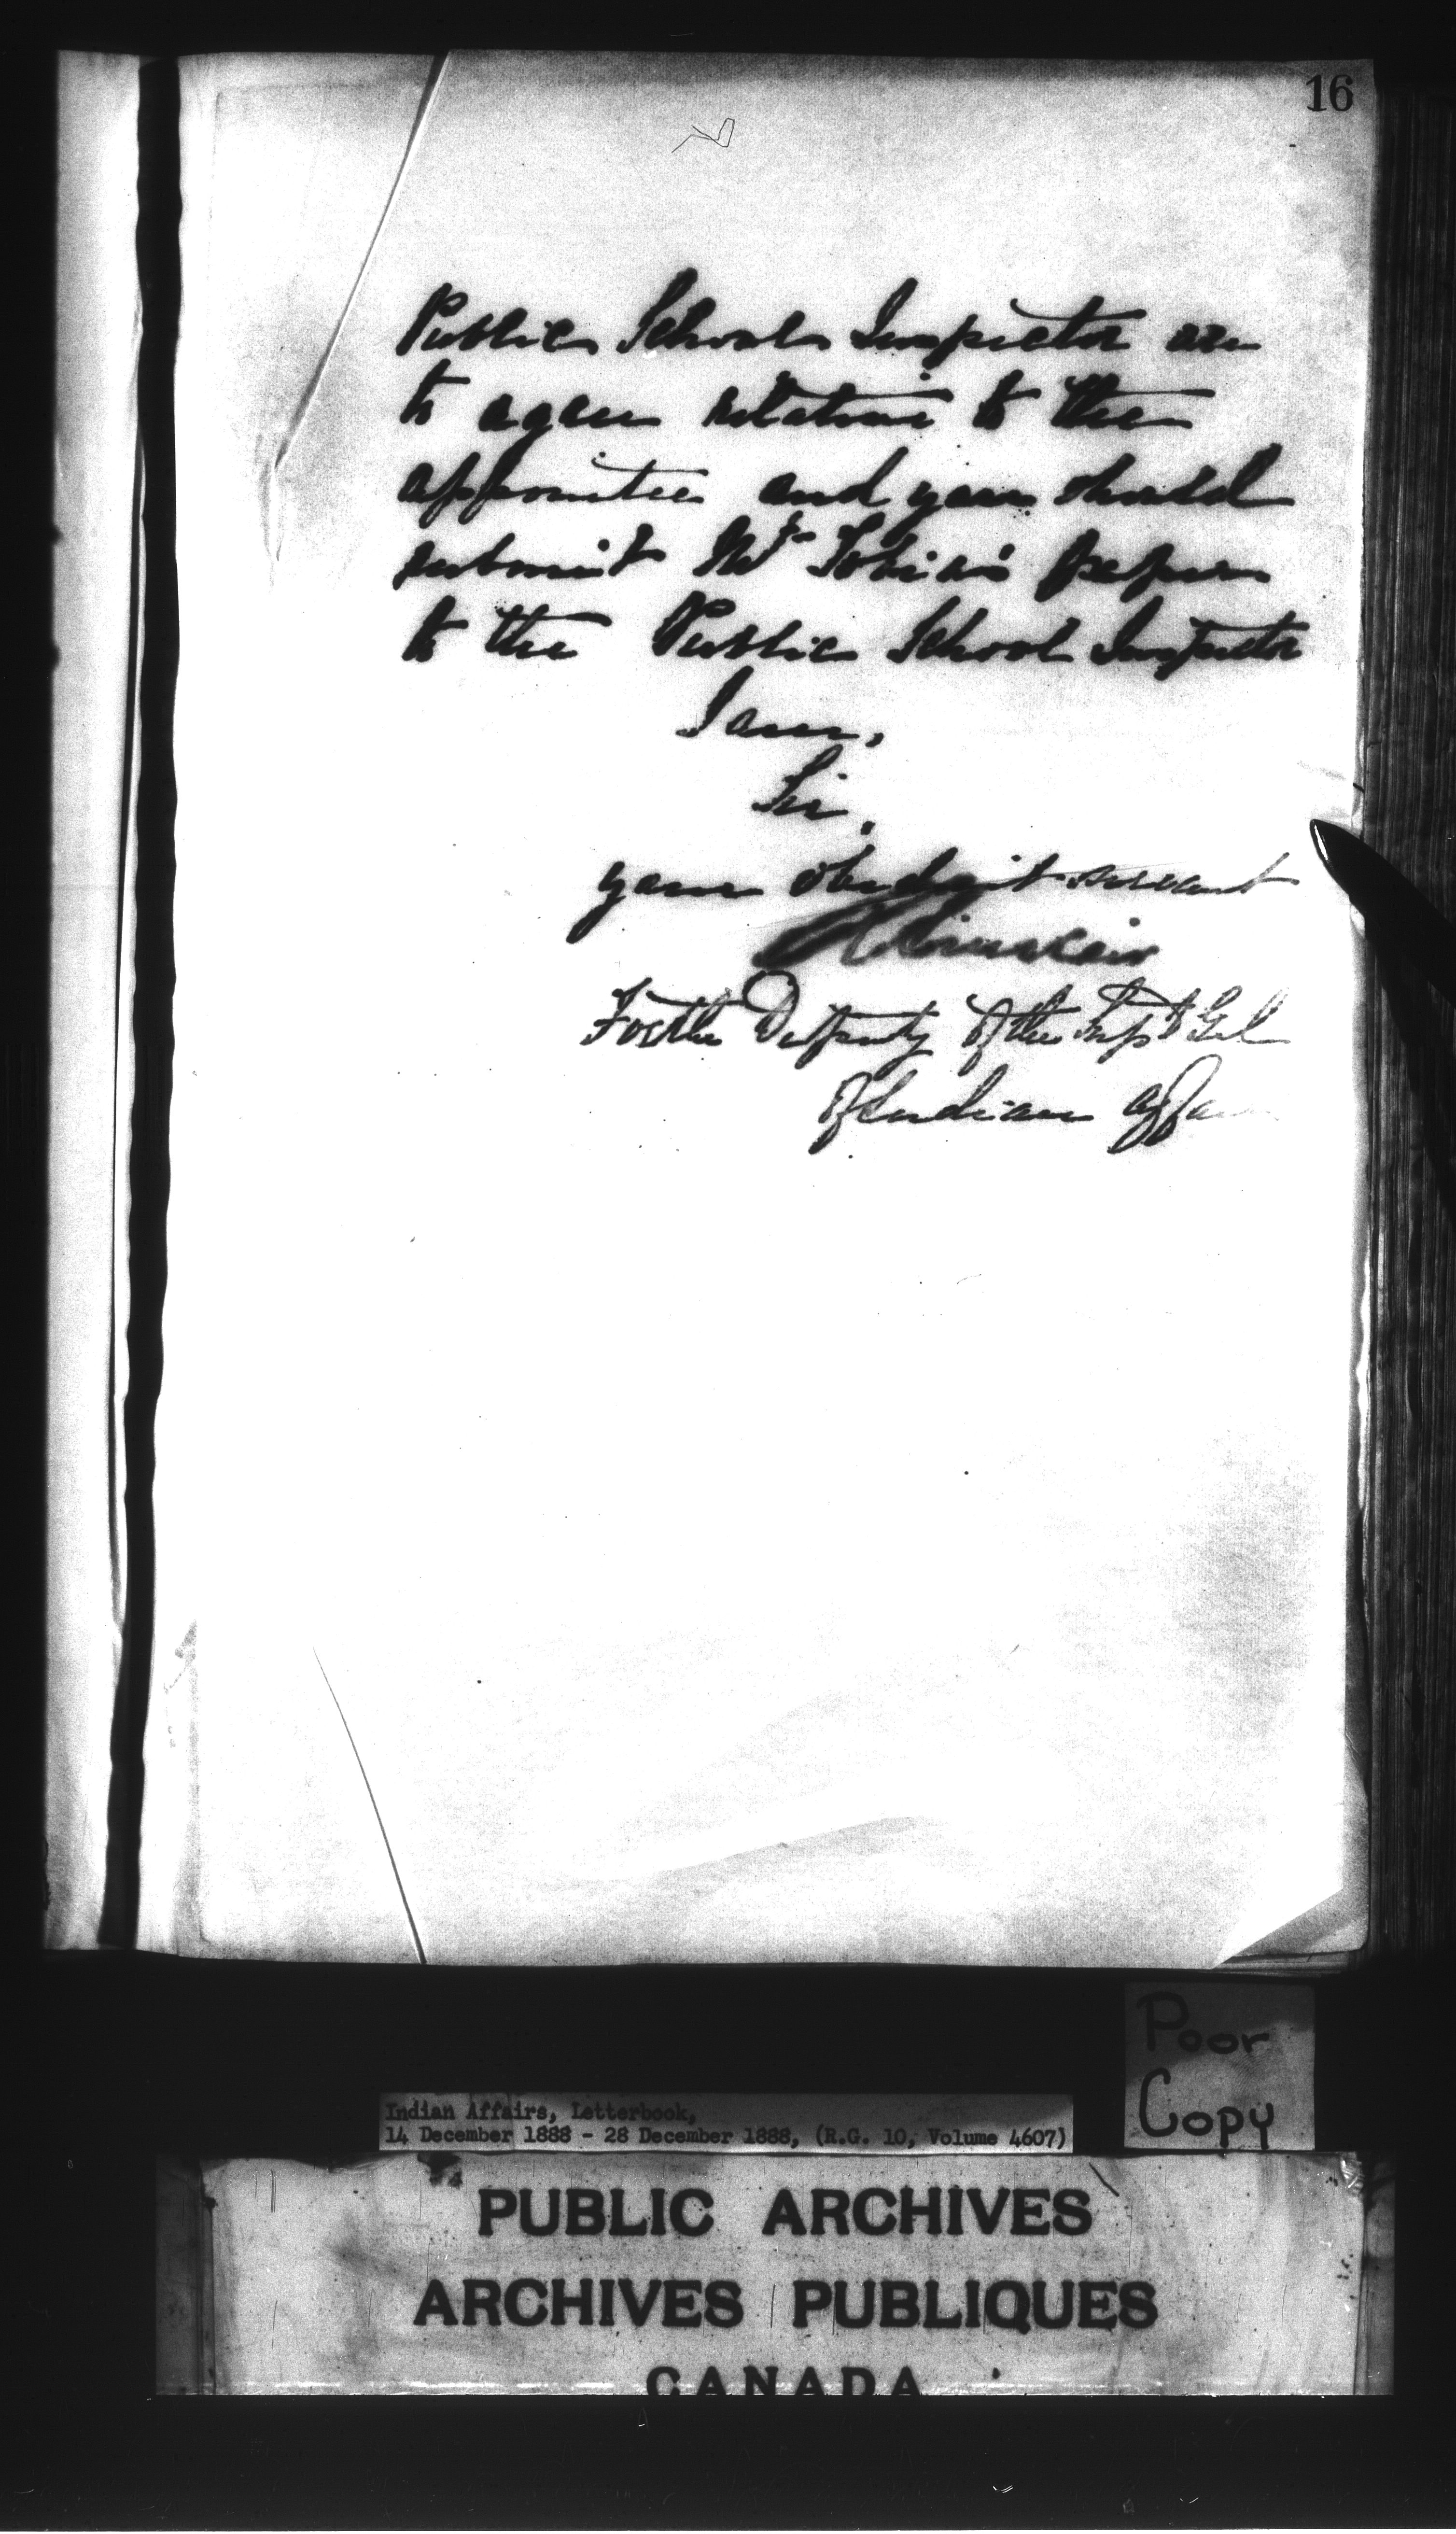 16
Public Schools Inspector are
to agree relative to the
appointee and you should
submit Mr Tobias' papers
to the Public School Inspector
I am,
Sir,
your obedient servant
R Sinclair
For the Deputy of the Supt Gel
of Indian Affai
Poor
Copy
Indian Affairs, Letterbook,
14 December 1888 - 28 December 1888, (R.G. 10, Volume 4607)
PUBLIC ARCHIVES
ARCHIVES PUBLIQUES
CANADA